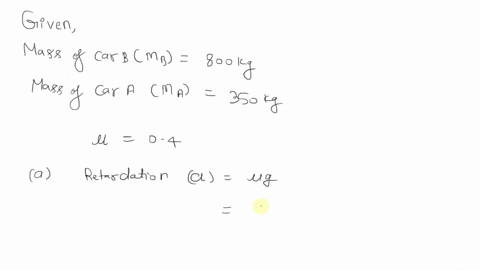 Given,
Mass of car B (MB) = 800 kg
Mass of car A (MA) = 350 kg
μ = 0.4
(a) Retardation (a) = μg
=